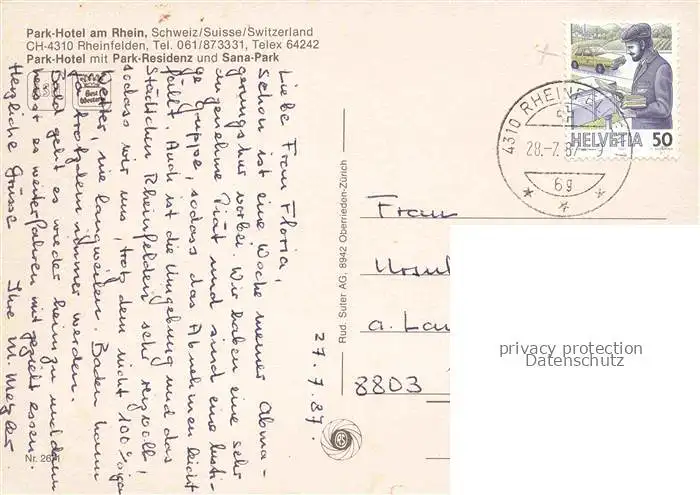 Park-Hotel am Rhein, Schweiz/Suisse/Switzerland
CH-4310 Rheinfelden, Tel. 061/873331, Telex 64242
Park-Hotel mit Park-Residenz und Sana-Park
Best
Western
27.7.87.
Liebe Frau Floria,
Schon ist eine Woche meiner Abma-
gerungskur vorbei. Wir haben eine sehr
angenehme Diät und sind eine lusti-
ge Gruppe, sodass das Abnehmen leicht
fällt. Auch ist die Umgebung und das
Städtchen Rheinfelden sehr reizvoll!
sodass wir uns, trotz dem nicht 100%igen
Wetter, nie langweilen. Baden kann
man trotzdem immer werden.
Bald geht es wieder heim zu und dann
heisst es weiterfahren mit gezielt essen.
Herzliche Grüsse Ihre M. Metzler
Nr. 26
Rud. Suter AG, 8942 Oberrieden-Zürich
4310 RHEINFELDEN
28.-7.87.-9
6g
HELVETIA 50
Frau
Ursul
a. Lau
8803
privacy protection
Datenschutz